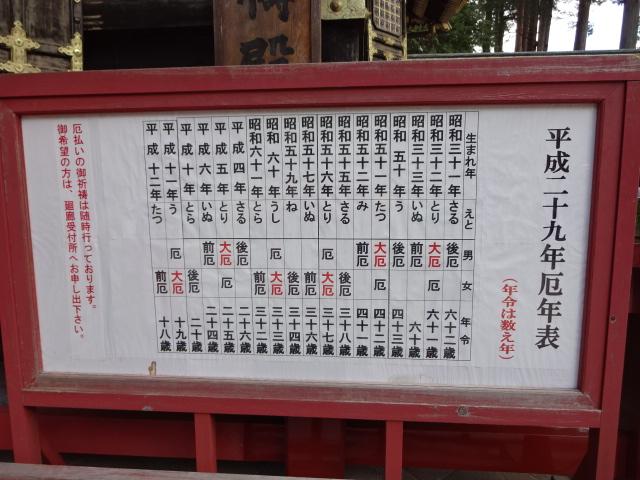 殿
平成二十九年厄年表
(年令は数え年)
生まれ年 えと 男 女 年令
昭和三十一年 さる 後厄 六十二歳
昭和三十二年 とり 大厄 厄 六十一歳
昭和三十三年 いぬ 前厄 六十歳
昭和五十年 う 後厄 四十三歳
昭和五十一年 たつ 大厄 厄 四十二歳
昭和五十二年 み 前厄 四十一歳
昭和五十五年 さる 後厄 三十八歳
昭和五十六年 とり 厄 大厄 三十七歳
昭和五十七年 いぬ 前厄 三十六歳
昭和五十九年 ね 後厄 三十四歳
昭和六十年 うし 厄 大厄 三十三歳
昭和六十一年 とら 前厄 三十二歳
平成四年 さる 後厄 二十六歳
平成五年 とり 大厄 厄 二十五歳
平成六年 いぬ 前厄 二十四歳
平成十年 とら 後厄 二十歳
平成十一年 う 厄 大厄 十九歳
平成十二年 たつ 前厄 十八歳
厄払いの御祈禱は随時行っております。
御希望の方は、廻廊受付所へお申し出下さい。